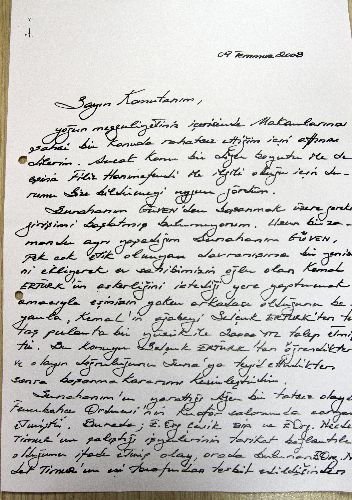 09 Temmuz 2008
Sayın Komutanım,
yoğun meşguliyetiniz içerisinde Makamlarınızı
şahsi bir konuda rahatsız ettiğim için affınızı
dilerim. Ancak konu bir diğer boyutu ile de
eşiniz Filiz Hanımefendi ile ilgili olduğu için du-
rumu Size bildirmeyi uygun gördüm.
Sunahanım GÜVEN'den boşanmak üzere gerekli
girişimi başlatmış bulunuyorum. Uzun bir za-
mandır ayrı yaşadığım Sunahanım GÜVEN,
pek çok etik olmayan davranışına bir yenisi-
ni ekleyerek ev sahibimizin oğlu olan Kemal
ERTÜRK'ün askerliğini istediği yere yaptırmak
amacıyla eşinizin yakın arkadaşı olduğunu be-
yanla, Kemal'in ağabeyi Selçuk ERTÜRK'ten
taş pırlanta bir yüzük ile YTL talep etmiş-
tir. Bu konuyu Selçuk ERTÜRK'ten öğrendikten
ve olayın doğruluğunu Suna'ya teyid ettirdikten
sonra boşanma kararımı kesinleştirdim.
Sunahanım'ın yarattığı diğer bir hatası olayda
Fenerbahçe Orduevi'nin kuaför salonunda
etmişti. Burada, E.Org. Çevik Bir ve E.Org.
Timur'un çalıştığı işyerlerinin tarikat bağlantılı
olduğunu ifade etmiş olay, orada bulunan E.Org.
Timur'un eşi tarafından tespit edildiğinden